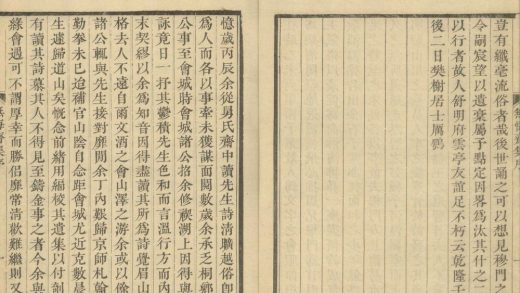 無悔齋集序
豈有纖毫流俗者哉後世誦之可以想見穆門之
今嗣宸望以遺橐屬予點定因畧為汰其什之二
以行者故人舒明府雲亭友誼足不朽云乾隆壬
後二日樊榭居士厲鶚
憶歲丙辰余從舅氏齋中讀先生詩清曠越俗卽
為人而各以事牽未獲謀面閱數歲余承乏桐鄉
公事至會城時會城諸公招余修禊湖上因得與
詠竟日一抒其鬱積先生色和而言溫行方而內
末契繆以余為知音因得盡讀其所為詩覺眉山
格去人不遠自爾文酒之會山澤之游余或以僚
諸公輒與先生接對靡閒余丁內艱歸京師札翰
勤拳未已迨補官山陰自念距會城尤近克數晨
生遽歸道山矣慨念前緒用編挍其遺集以付剞
有讀其詩慕其人不得見至鑄金事之者今余與
緣會遇可不謂厚幸而勝侶靡常清歡難繼則又
無悔齋集序